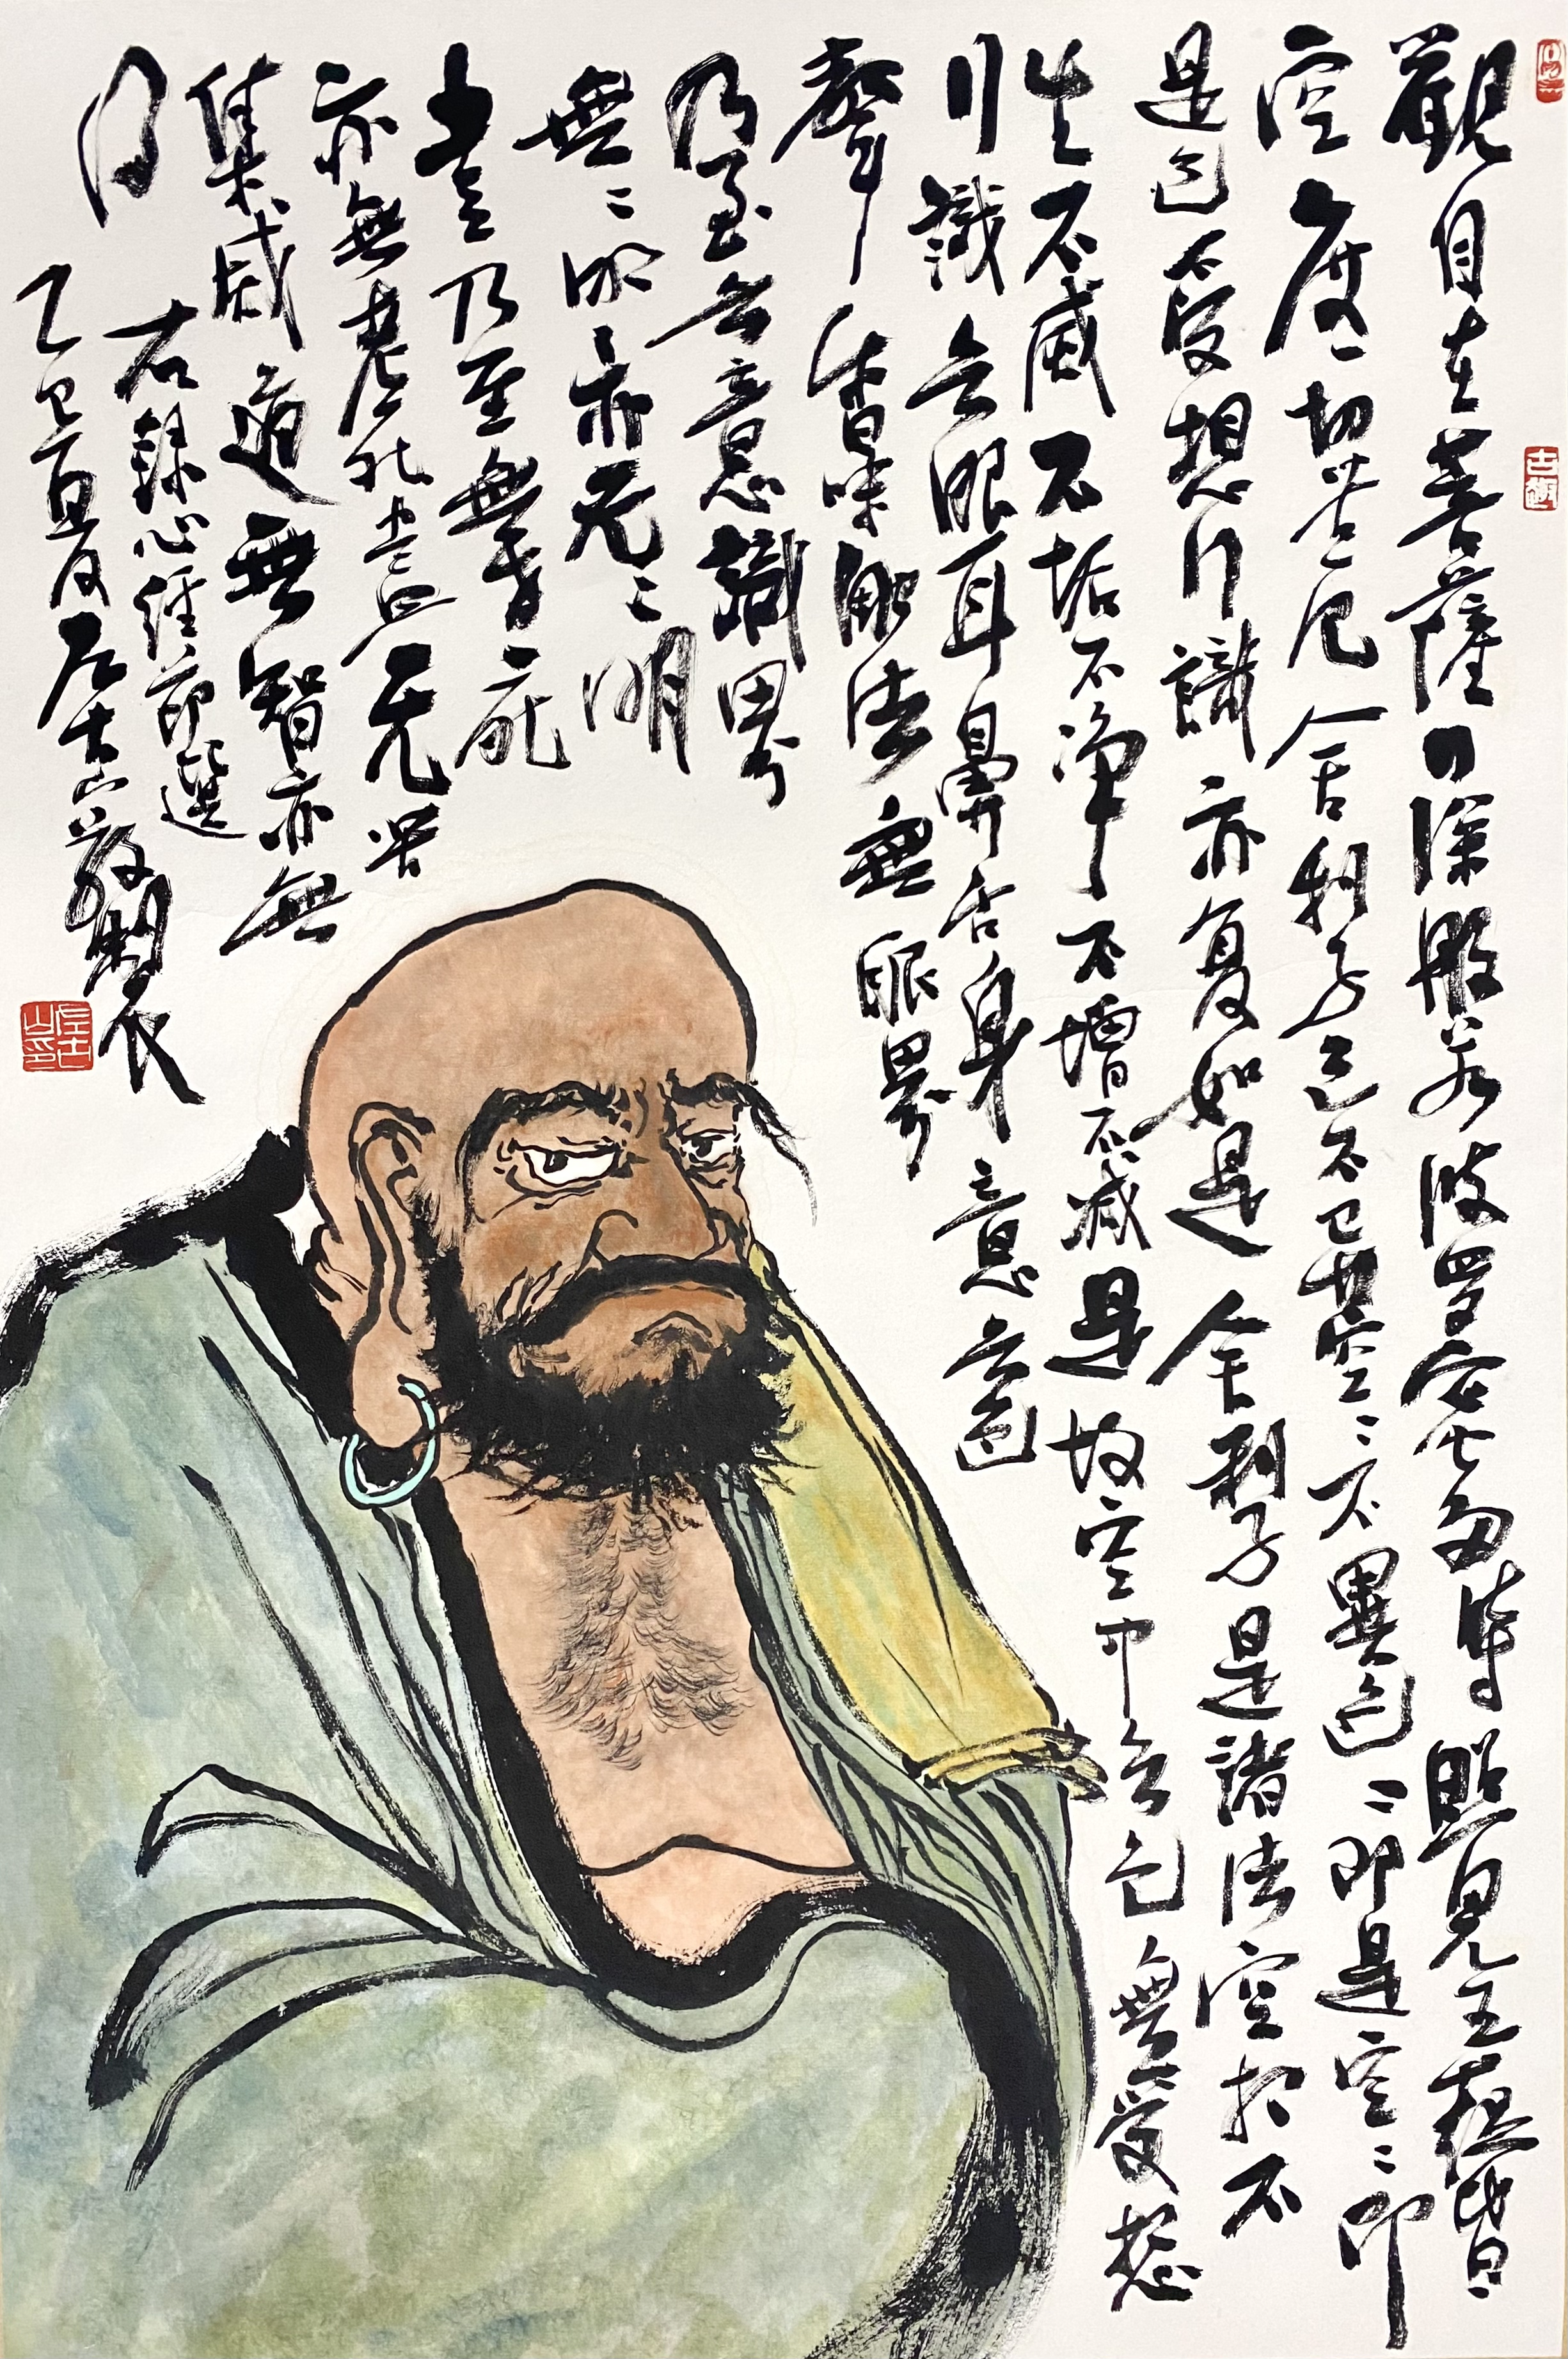 觀自在菩薩行深般若波羅蜜多時照見五蘊皆
空度一切苦厄舍利子色不異空〻不異色〻即是空〻即
是色受想行識亦復如是舍利子是諸法空相不
生不滅不垢不淨不增不減是故空中无色無受想
行識无眼耳鼻舌身意无色
聲香味觸法無眼界
乃至无意識界
無〻明亦无〻明
盡乃至無老死
亦無老死盡无苦
集滅道無智亦無
得
右錄心經節選
乙巳夏月左古山
左古山印
古趣